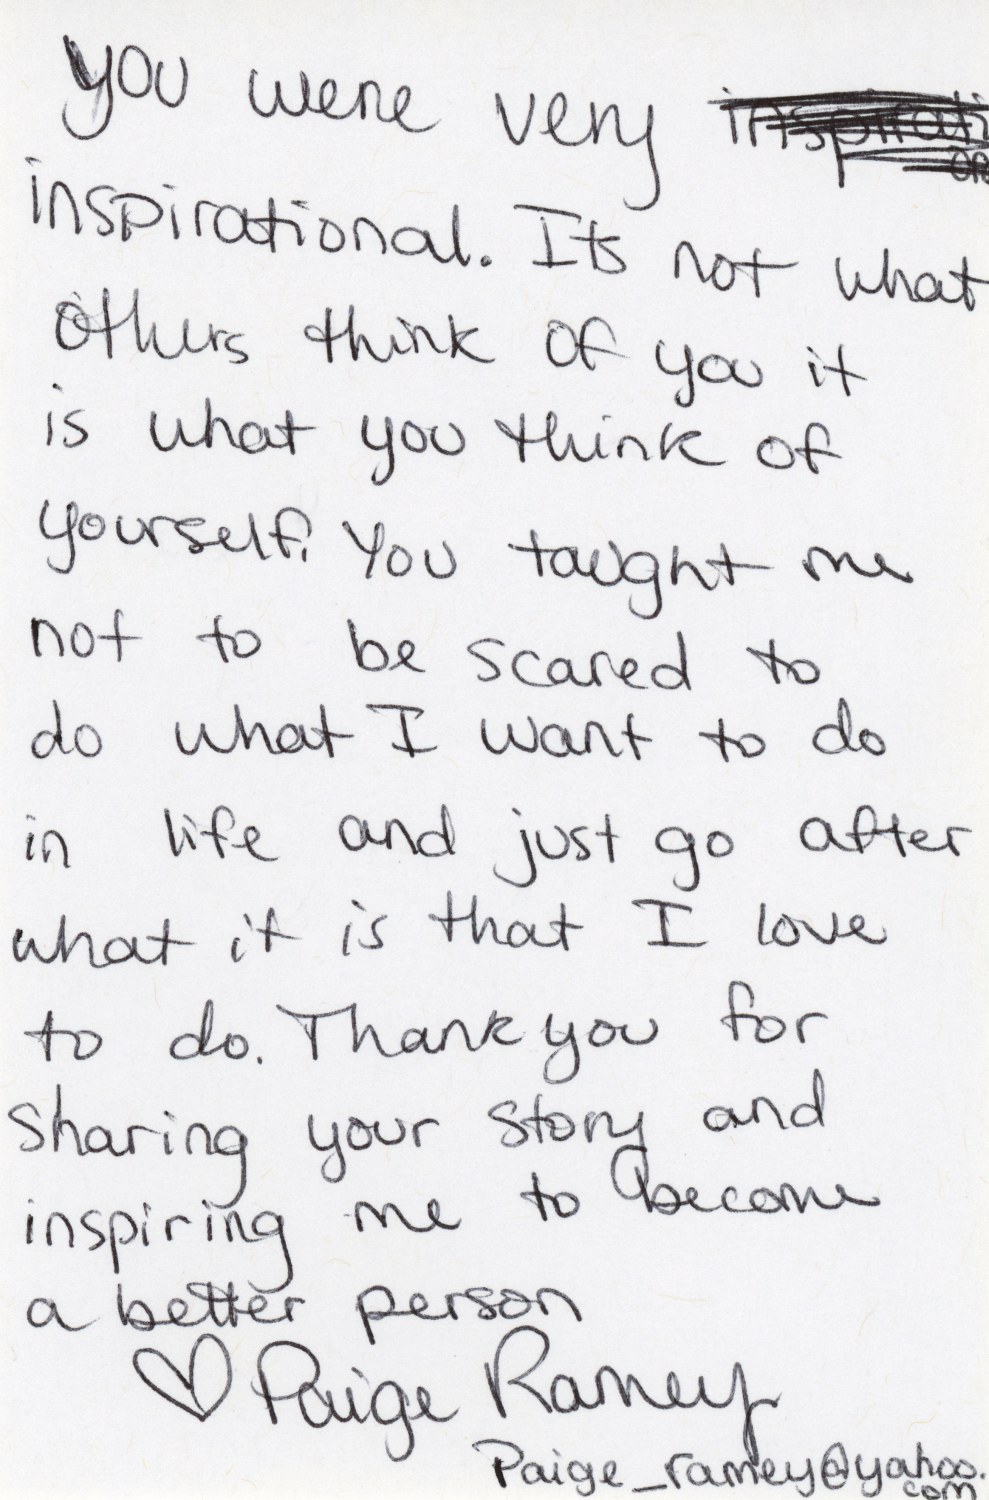 you were very
inspirational. Its not what
others think of you it
is what you think of
yourself. You taught me
not to be scared to
do what I want to do
in life and just go after
what it is that I love
to do. Thank you for
sharing your story and
inspiring me to become
a better person
♡ Paige Ramey
Paige_ramey@yahoo.
com